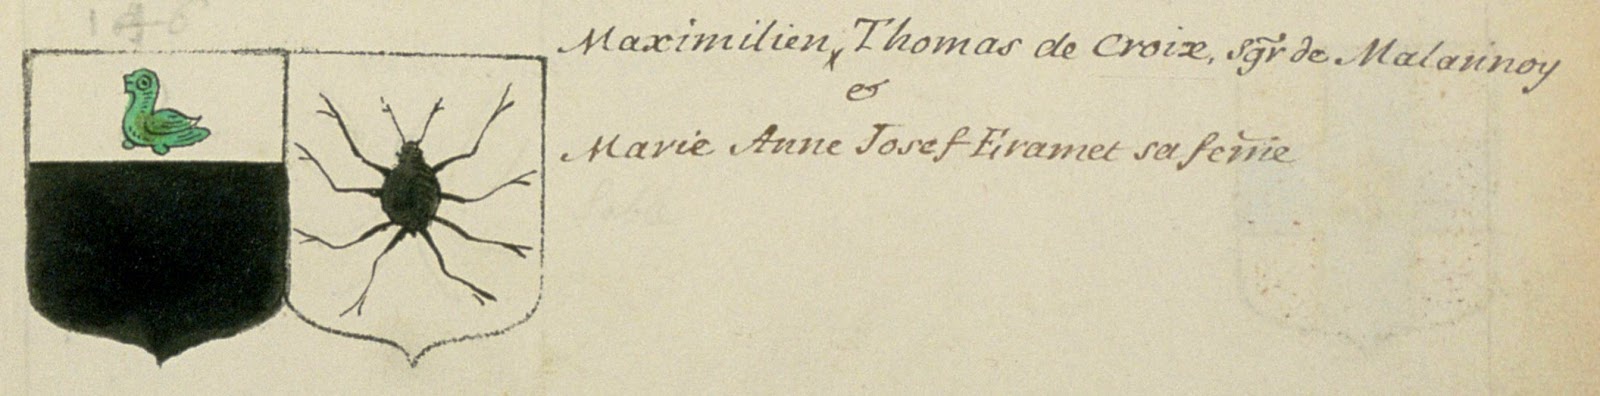 146
Maximilien, Thomas de Croix, sgr de Malannoy
&
Marie Anne Josef Eiramet sa feme